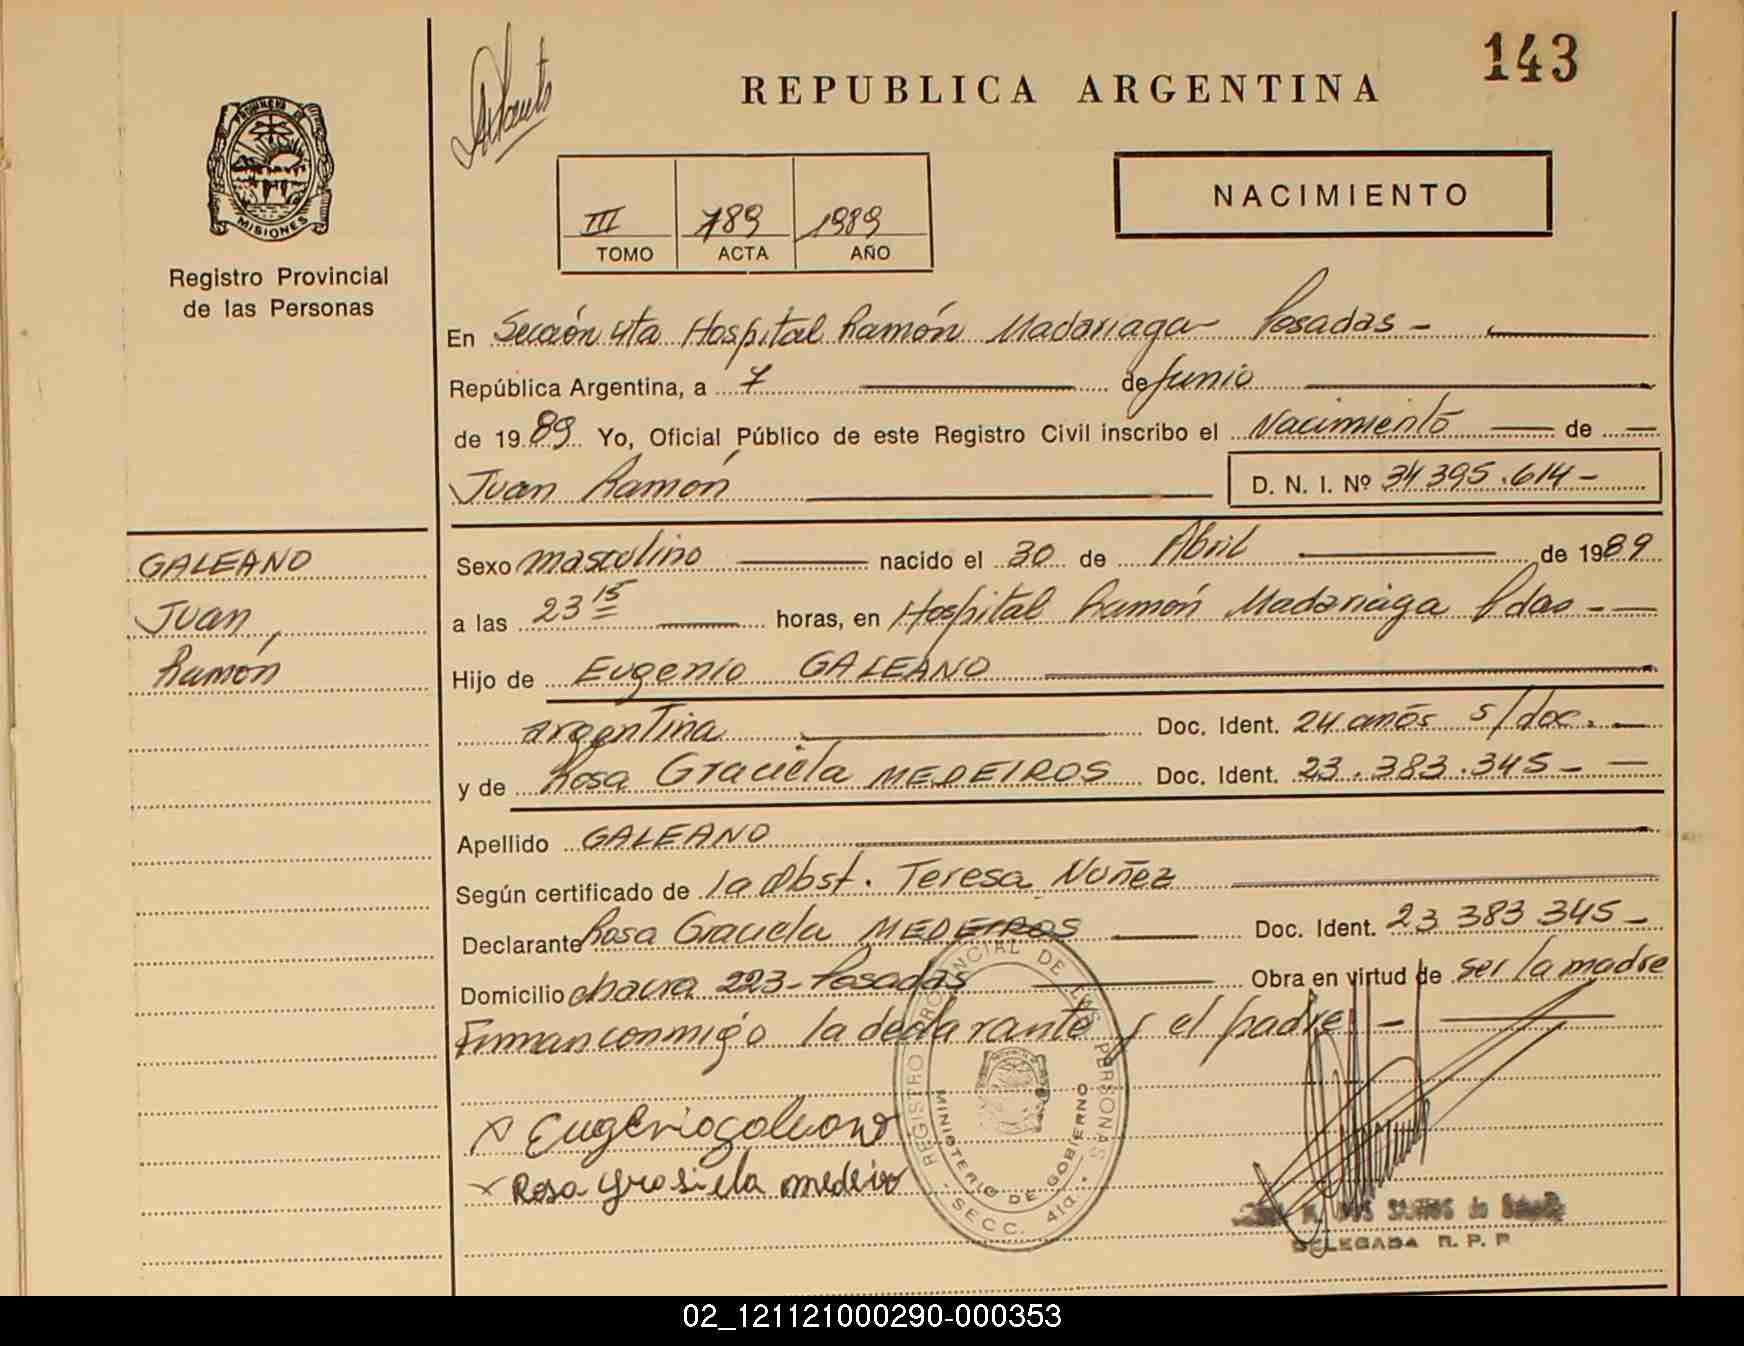 143
REPUBLICA ARGENTINA
PROVINCIA DE
MISIONES
Registro Provincial
de las Personas
NACIMIENTO
III 789 1989
TOMO ACTA AÑO
En Sección 4ta Hospital Ramón Madariaga Posadas -
República Argentina, a 7 de Junio
de 1989 Yo, Oficial Público de este Registro Civil inscribo el Nacimiento de
Juan Ramón D. N. I. Nº 34 395.614-
GALEANO
Juan
Ramón
Sexo masculino nacido el 30 de Abril de 1989
a las 23 15 horas, en Hospital Ramón Madariaga Pdas -
Hijo de Eugenio GALEANO
argentina Doc. Ident. 24 años s/doc.
y de Rosa Graciela MEDEIROS Doc. Ident. 23.383.345-
Apellido GALEANO
Según certificado de la Obst. Teresa Nuñez
Declarante Rosa Graciela MEDEIROS Doc. Ident. 23 383 345-
Domicilio chacra 223- Posadas Obra en virtud de ser la madre
Firman conmigo la declarante y el padre -
REGISTRO PROVINCIAL DE LAS PERSONAS
MINISTERIO DE GOBIERNO
SECC. 4ta.
x Eugenio galeano
x Rosa grasiela medeiro
DOS SANTOS de
DELEGADA R. P. P.
02_121121000290-000353